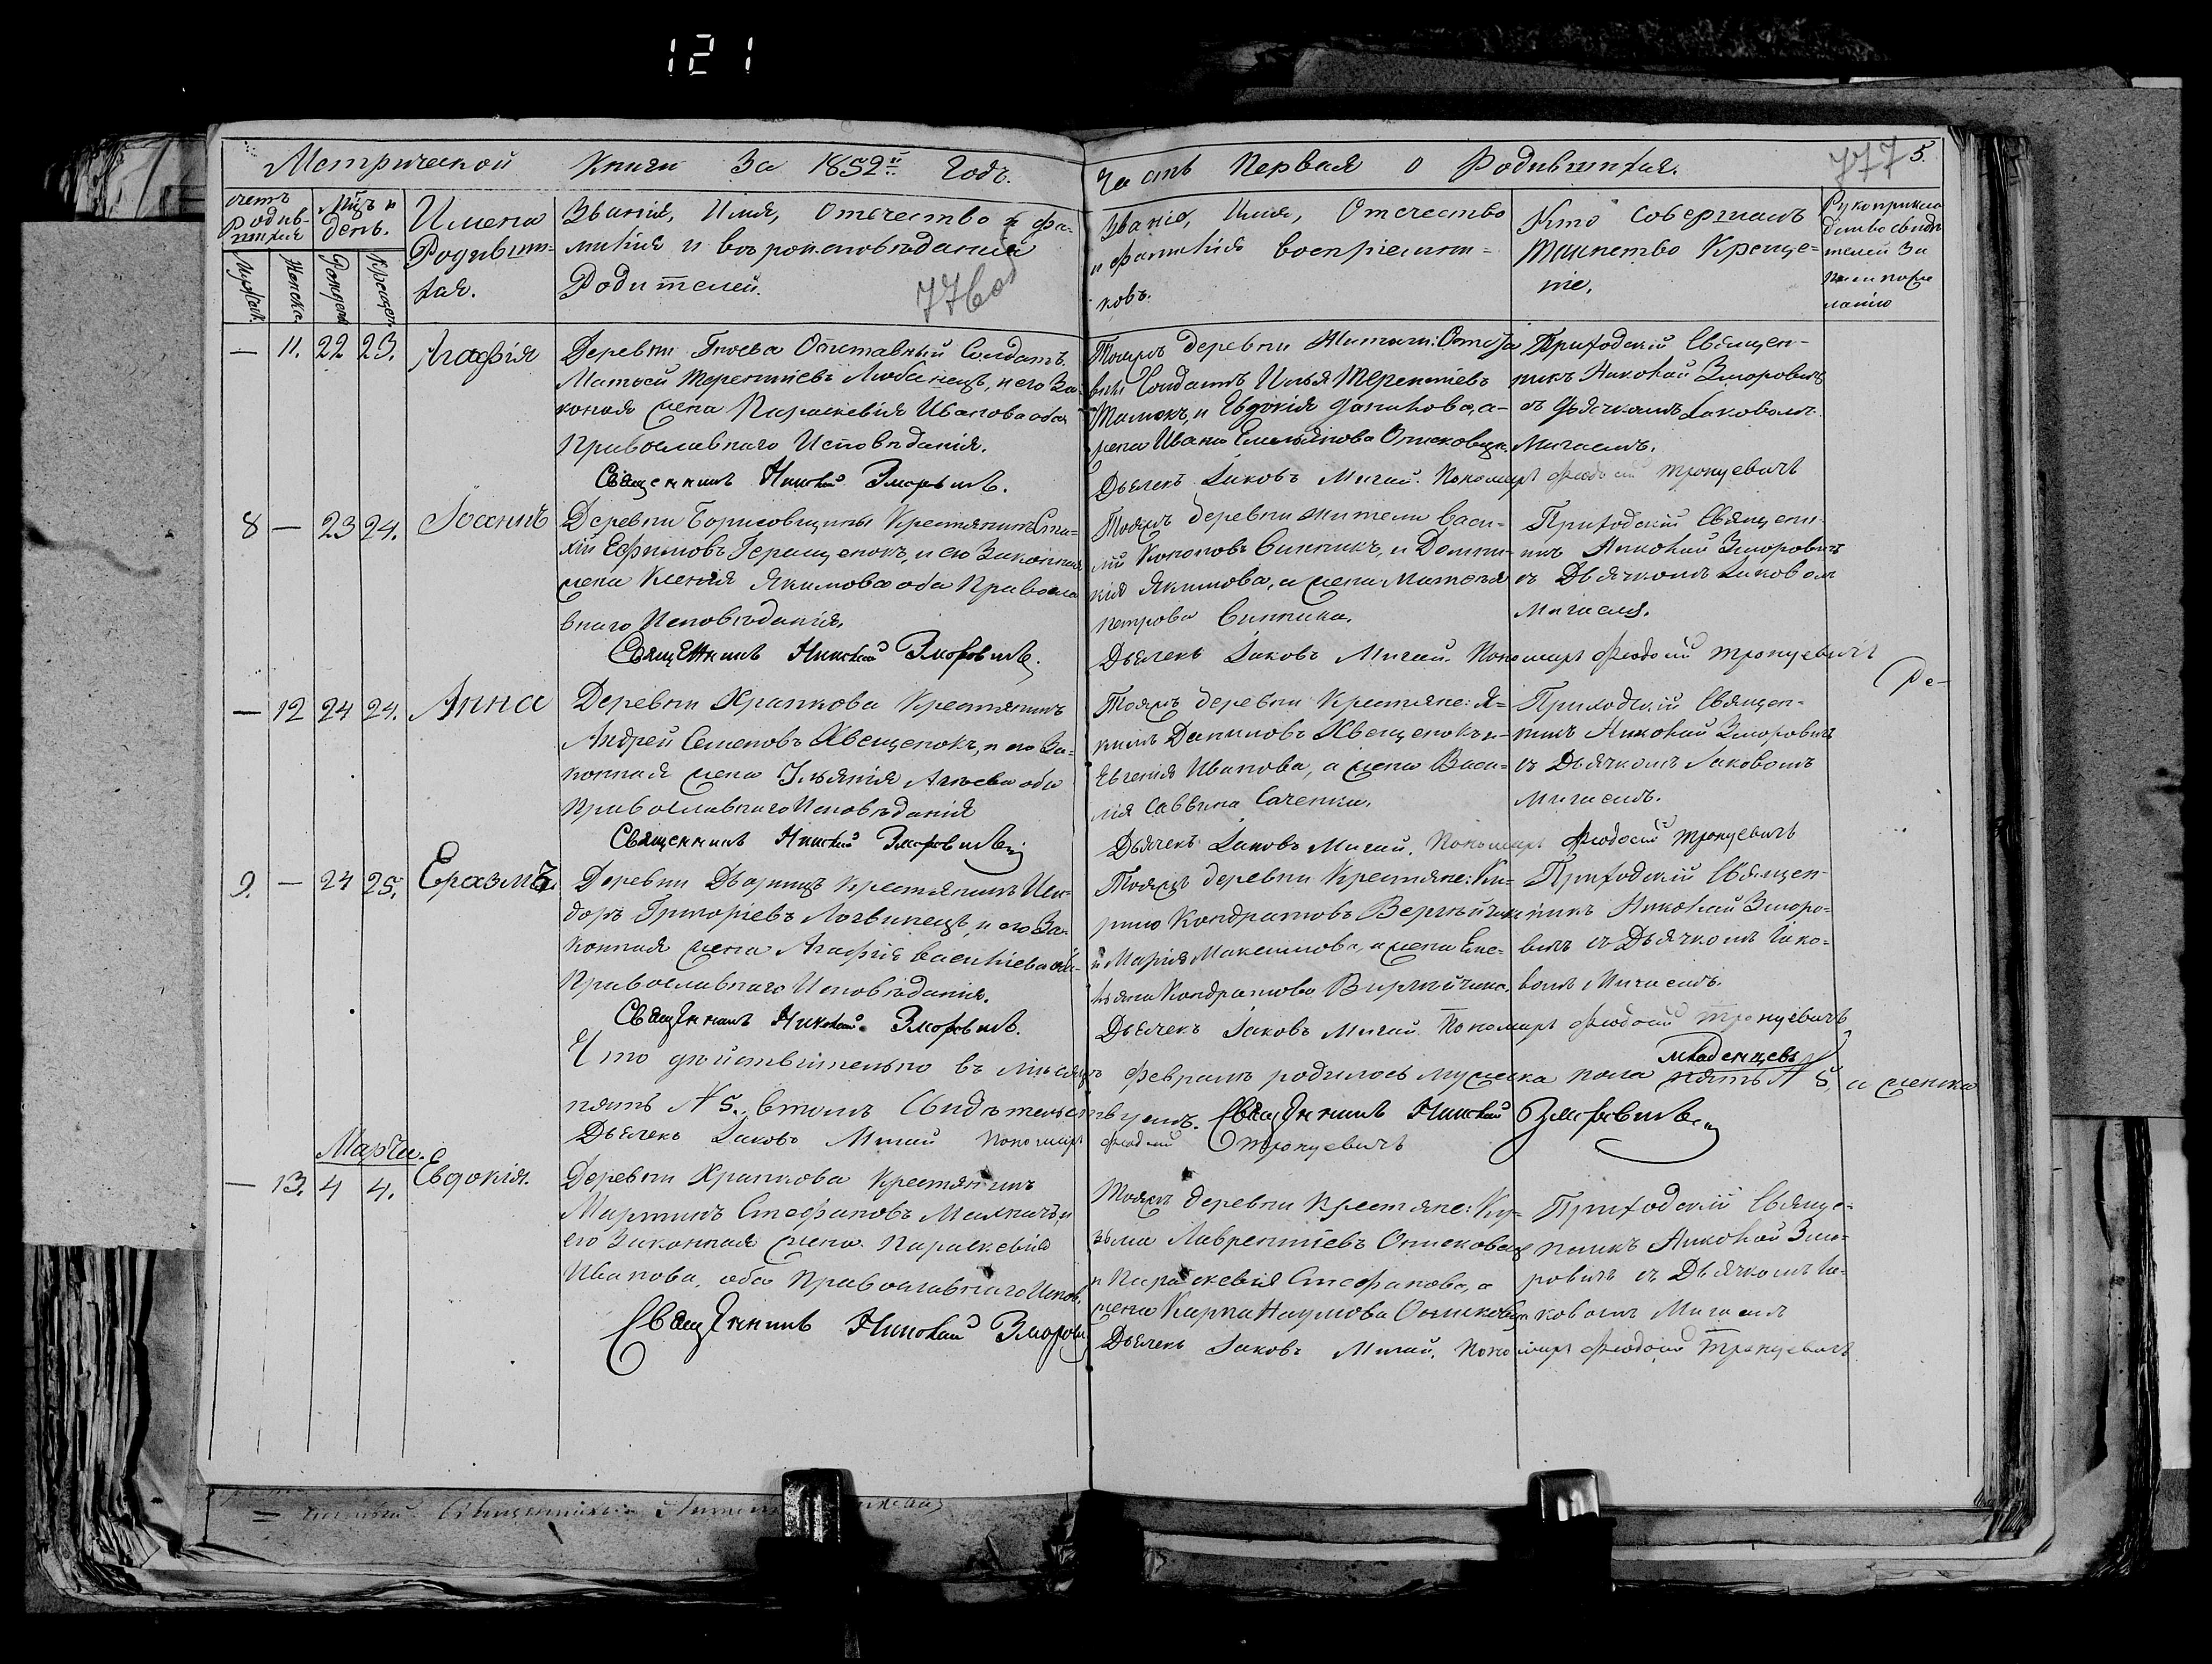 121
Метрической Книги За 1852й Годъ.
Часть Первая о Родившихся.
777
5.
776об
счетъ Родив-шихся
Мцъ и день.
Мужеск.
Женска.
Рожден
Крещен.
Имена
Родивш=
хся.
Званія, Имя, Отечество и фа-
милія и вѣроисповѣданія
Родителей.
Званіе, Имя, Отечество
и фамилія воспріемни-
ковъ.
Кто Совершалъ
Таинство Креще=
ніе.
Рукоприкла
дство свидѣ
телей За
писи по же
ланію
— 11. 22 23. Агафія
Деревни Гнева Отставный Солдатъ
Матѳей Терентіевъ Любанецъ, и его За-
конная жена Параскевія Иванова оба
Православнаго Исповѣданія.
Священникъ Николай Зморовичъ.
Тояжъ деревни Жители: Отста
вный Солдатъ Илья Терентіевъ
и Евдокія Данилова, а-
жена Ивана Емельянова
Дьячекъ Іаковъ Мигай. Пономарь Ѳеодосій Тронцевичъ
Приходскій Священ-
никъ Николай Зморовичъ
съ Дьячкомъ Іаковомъ
Мигаемъ.
8 — 23 24. Іоаннъ
Деревни Борисовщины Крестьянинъ
Ефимовъ Геращенокъ, и его Законная
жена Ксенія Якимова оба Правосла
внаго Исповѣданія.
Священникъ Николай Зморовичъ.
Тояжъ деревни жители Васи-
лій Кононовъ Синникъ, и Домни-
кія Якимова, а жена Матвѣя
Петрова Синника.
Дьячекъ Іаковъ Мигай. Пономарь Ѳеодосій Тронцевичъ
Приходскій Священ-
никъ Николай Зморовичъ
съ Дьячкомъ Іаковомъ
Мигаемъ.
Ре-
— 12 24 24. Анна
Деревни Храпкова Крестьянинъ
Андрей Семеновъ Хвещенокъ, и его За-
конная жена Ульянія Агѣева оба
Православнаго Исповѣданія
Священникъ Николай Зморовичъ
Тояжъ деревни Крестьяне: Я-
кимъ Даниловъ Хвещенокъ и-
Евгенія Иванова, а жена Васи-
лія Саввина Саченки.
Дьячекъ Іаковъ Мигай. Пономарь Ѳеодосій Тронцевичъ
Приходскій Священ-
никъ Николай Зморовичъ
съ Дьячкомъ Іаковомъ
Мигаемъ.
9. — 24 25. Еразмъ.
Деревни Дворищъ Крестьянинъ Иси-
доръ Григоріевъ Логвинецъ, и его За-
конная жена Агафія Васильева оба-
Православнаго Исповѣданія.
Священникъ Николай Зморовичъ.
Тояжъ деревни Крестьяне: Ки-
рило Кондратовъ
и Марія Максимова, а жена Еме-
льяна Кондратова
Дьячекъ Іаковъ Мигай Пономарь Ѳеодосій Тронцевичъ
Приходскій Священ-
никъ Николай Зморо-
вичъ съ Дьячкомъ Іако-
вомъ Мигаемъ.
Что дѣйствительно въ мѣсяцѣ февралѣ родилось мужеска пола младенцевъ пять № 5, а женска
пять № 5. въ томъ Свидѣтельствуемъ. Священникъ Николай Зморовичъ
Дьячекъ Іаковъ Мигай Пономарь Ѳеодосій Тронцевичъ
Марта.
— 13. 4 4. Евдокія.
Деревни Храпкова Крестьянинъ
Мартинъ Стефановъ и
его Законная жена Параскевія
Иванова, оба Православнаго Испов.
Священникъ Николай Зморови
Тояжъ деревни Крестьяне: Ку-
зьма Лаврентіевъ
и Параскевія Стефанова, а
жена Карпа Наумова
Дьячекъ Іаковъ Мигай. Пономарь Ѳеодосій Тронцевичъ
Приходскій Свяще-
нникъ Николай Змо-
ровичъ съ Дьячкомъ Іа-
ковомъ Мигаемъ